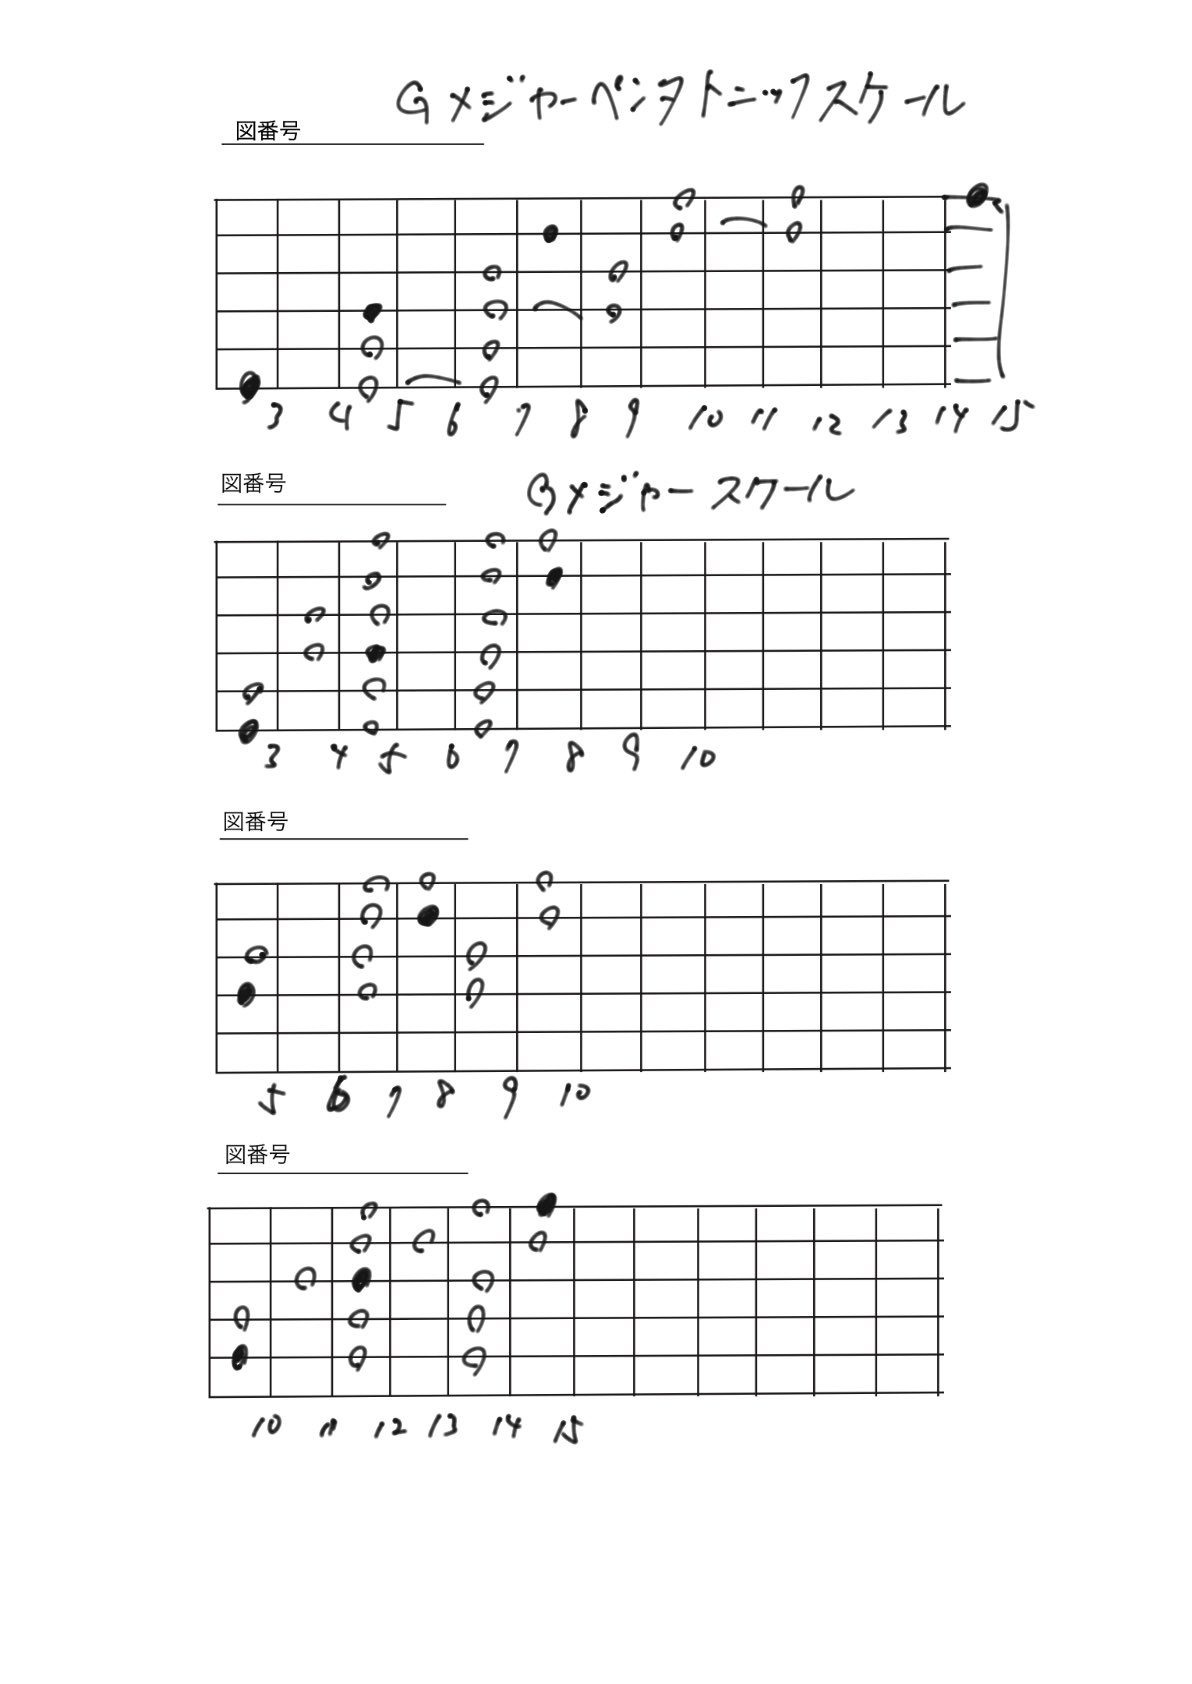 Gメジャーペンタトニックスケール
図番号
3 4 5 6 7 8 9 10 11 12 13 14 15
図番号 Gメジャースケール
3 4 5 6 7 8 9 10
図番号
5 6 7 8 9 10
図番号
10 11 12 13 14 15